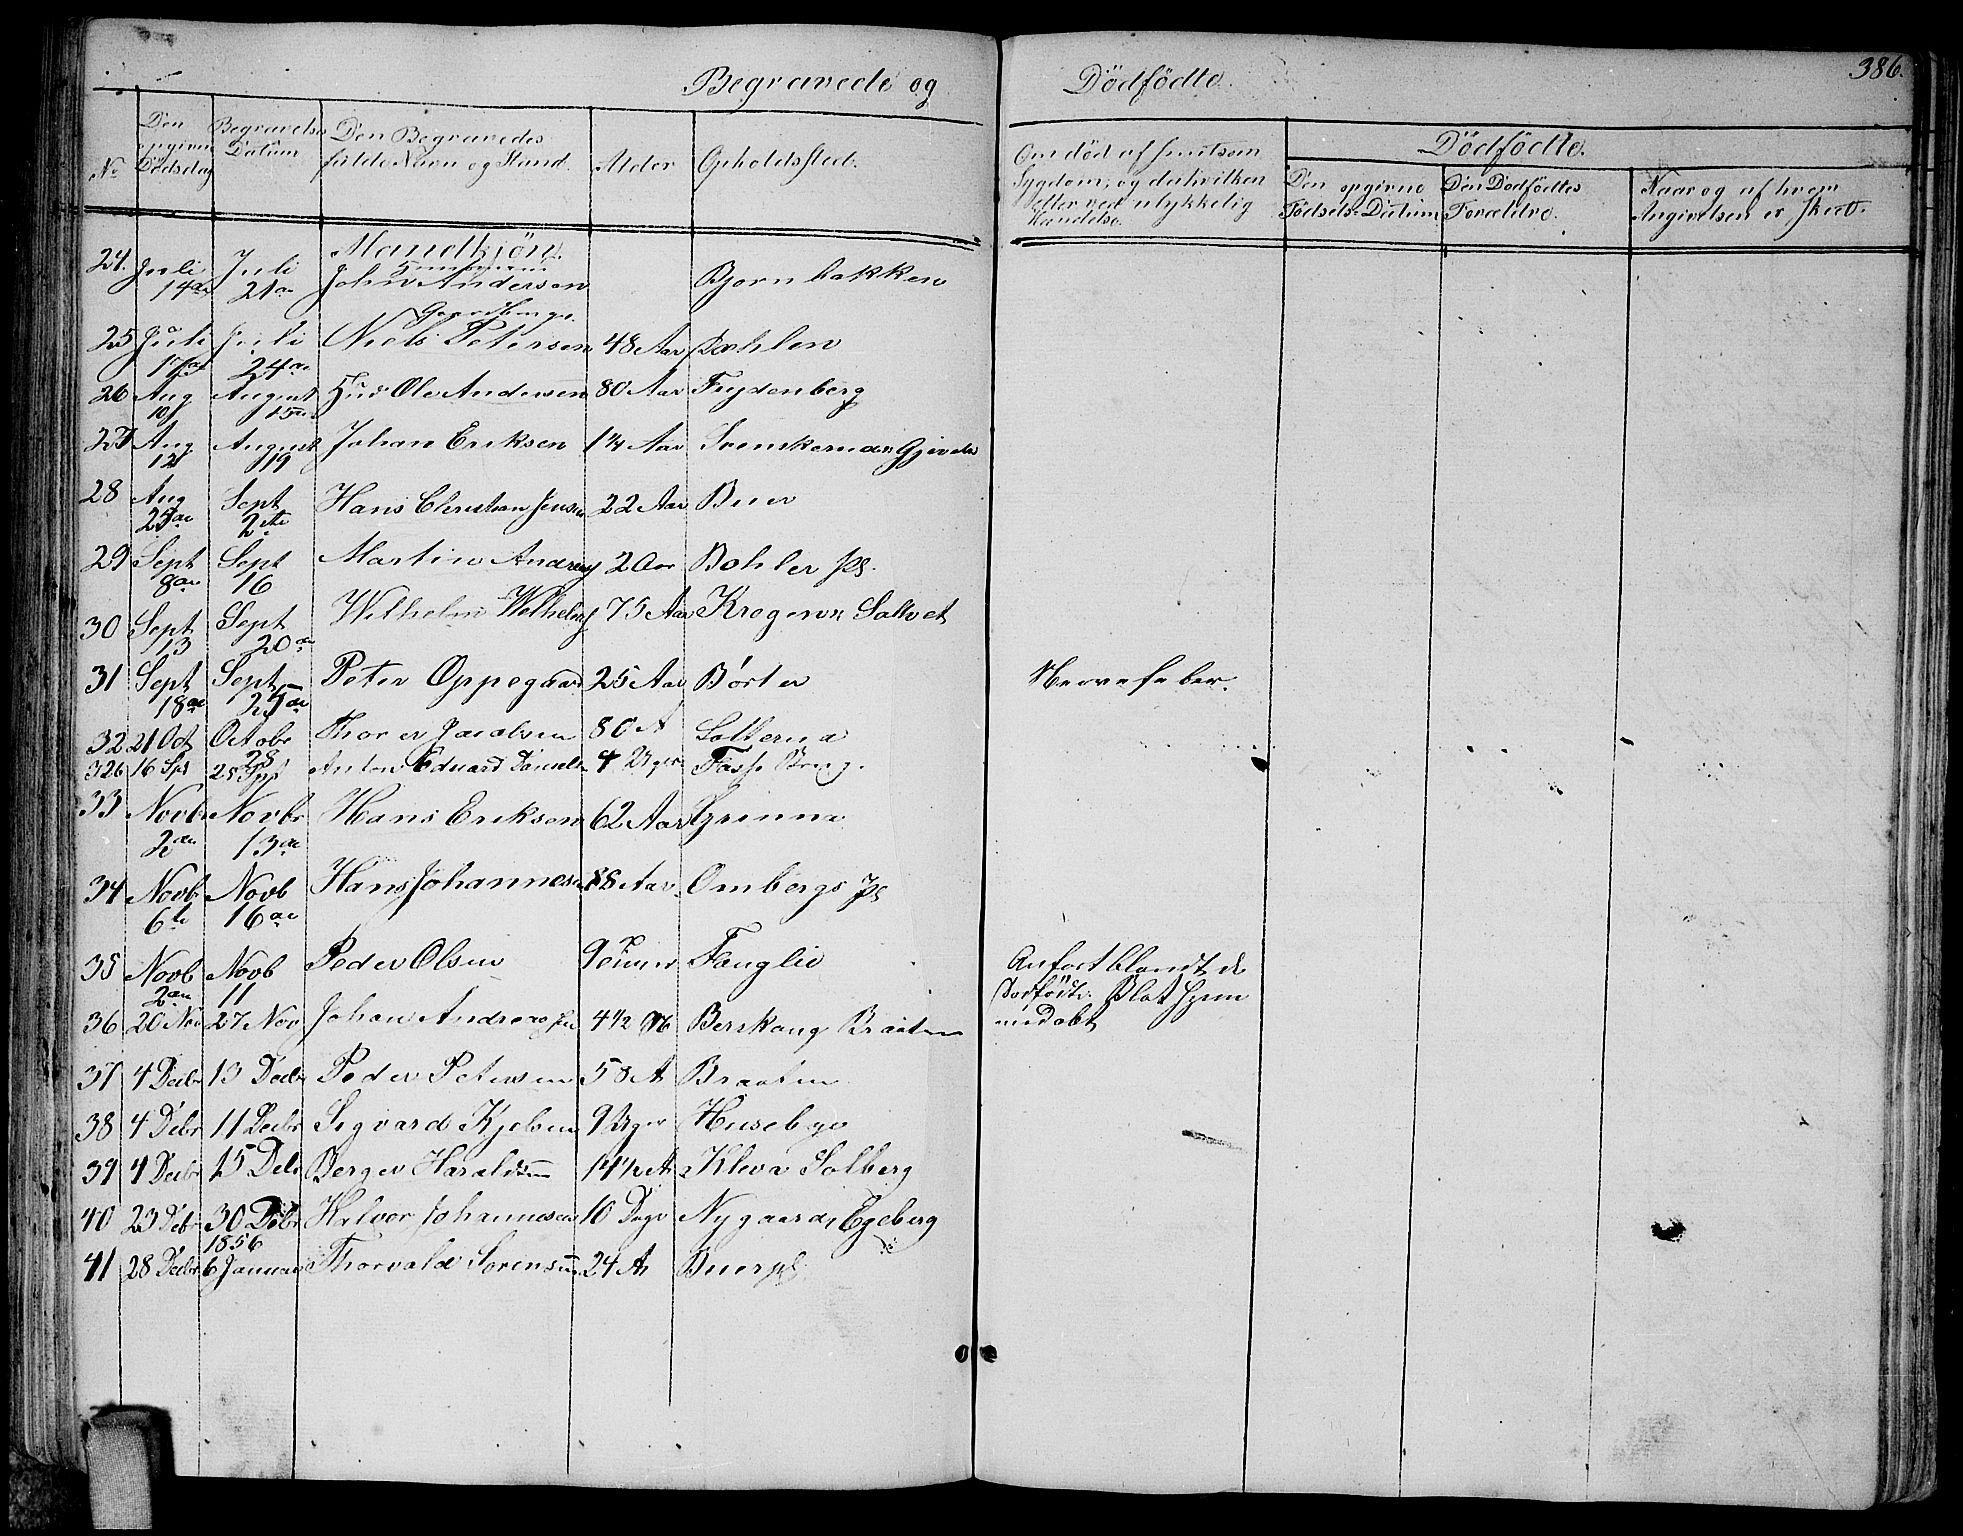 386.
Begravede og Dødfødte.
No
Den opgivne Dødsdag
Begravelses Datum
Den Begravedes fulde Navn og Stand.
Alder
Opholdssted.
Om død af smitsom Sygdom, og derhvilken eller ved ulykkelig Hændelse.
Dødfødte.
Den opgivne Fødsels-Datum
Den Dødfødtes Forældre.
Naar og af hvem Angivelsen er skeet.
Mandkjön.
24. Juli 14de Juli 21de John Andersen Bjørnbakken
25 Juli 17de Juli 24de Niels Petersen 48 Aar Dæhlen
26 Aug 10 August 15 Ole Andersen 80 Aar Frydenberg
27 Aug 12 August 19 Johan Eriksen 1 1/4 Aar
28 Aug 25de Sept 2de Hans Christian Jensen 22 Aar Buer
29 Sept 8de Sept 16 Martin Andreas 2 Aar Bøhler Ps.
30 Sept 13 Sept 20de Wilhelm Wilhelms 75 Aar Krogerun Saltvet
31 Sept 18de Sept 25de Peter Oppegaard 25 Aar Börter Nervefeber.
32 21 Oct Octobr 28 Thorer Jacobsen 80 A Solterna
32b 16 Spt 25 Spt Anton Eduard Danielsen 4 Uger
33 Novb 2den Novbr 13de Hans Eriksen 62 Aar Grinna
34 Novbr 6te Novb 16de Hans Johannesen 88 Aar Ombergs Ps
35 Novb 2den Novb 11 Peder Olsen 9 Fanglie Anført blandt de
36 20 Nov 27 Nov Johan Andreas 4 1/2 M Berskaug Braaten
37 4 Decbr 13 Decbr Peder Petersen 58 A Braaten
38 4 Decbr 11 Decbr Sigvard Kjelsen 9 Uger Huseby
39 4 Decbr 15 Decbr Berger Haraldsen 14 1/2 A Kleva Solberg
40 23 Decbr 30 Decbr Halvor Johannesen 10 Dage Nygaard, Egeberg
1856
41 28 Decbr 6 Januar Thorvald Sorensen 24 A Buer ps.